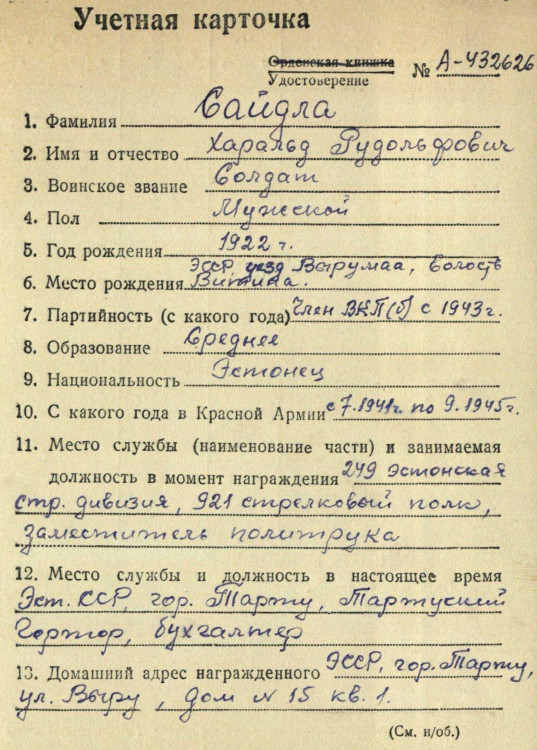 Учетная карточка
Орденская книжка
Удостоверение № А-432626
1. Фамилия Сайдла
2. Имя и отчество Харальд Рудольфович
3. Воинское звание Солдат
4. Пол Мужской
5. Год рождения 1922 г.
ЭССР уезд Вырумаа, волость
6. Место рождения Витина.
7. Партийность (с какого года) Член ВКП(б) с 1943 г.
8. Образование Среднее
9. Национальность Эстонец
10. С какого года в Красной Армии с 7.1941г. по 9.1945г.
11. Место службы (наименование части) и занимаемая
должность в момент награждения 249 Эстонская
стр. дивизия, 921 стрелковый полк,
заместитель политрука
12. Место службы и должность в настоящее время
Эст. ССР, гор. Тарту, Тартуский
Горторг, бухгалтер
13. Домашний адрес награжденного ЭССР, гор. Тарту,
ул. Выру, дом N 15 кв. 1.
(См. н/об.)